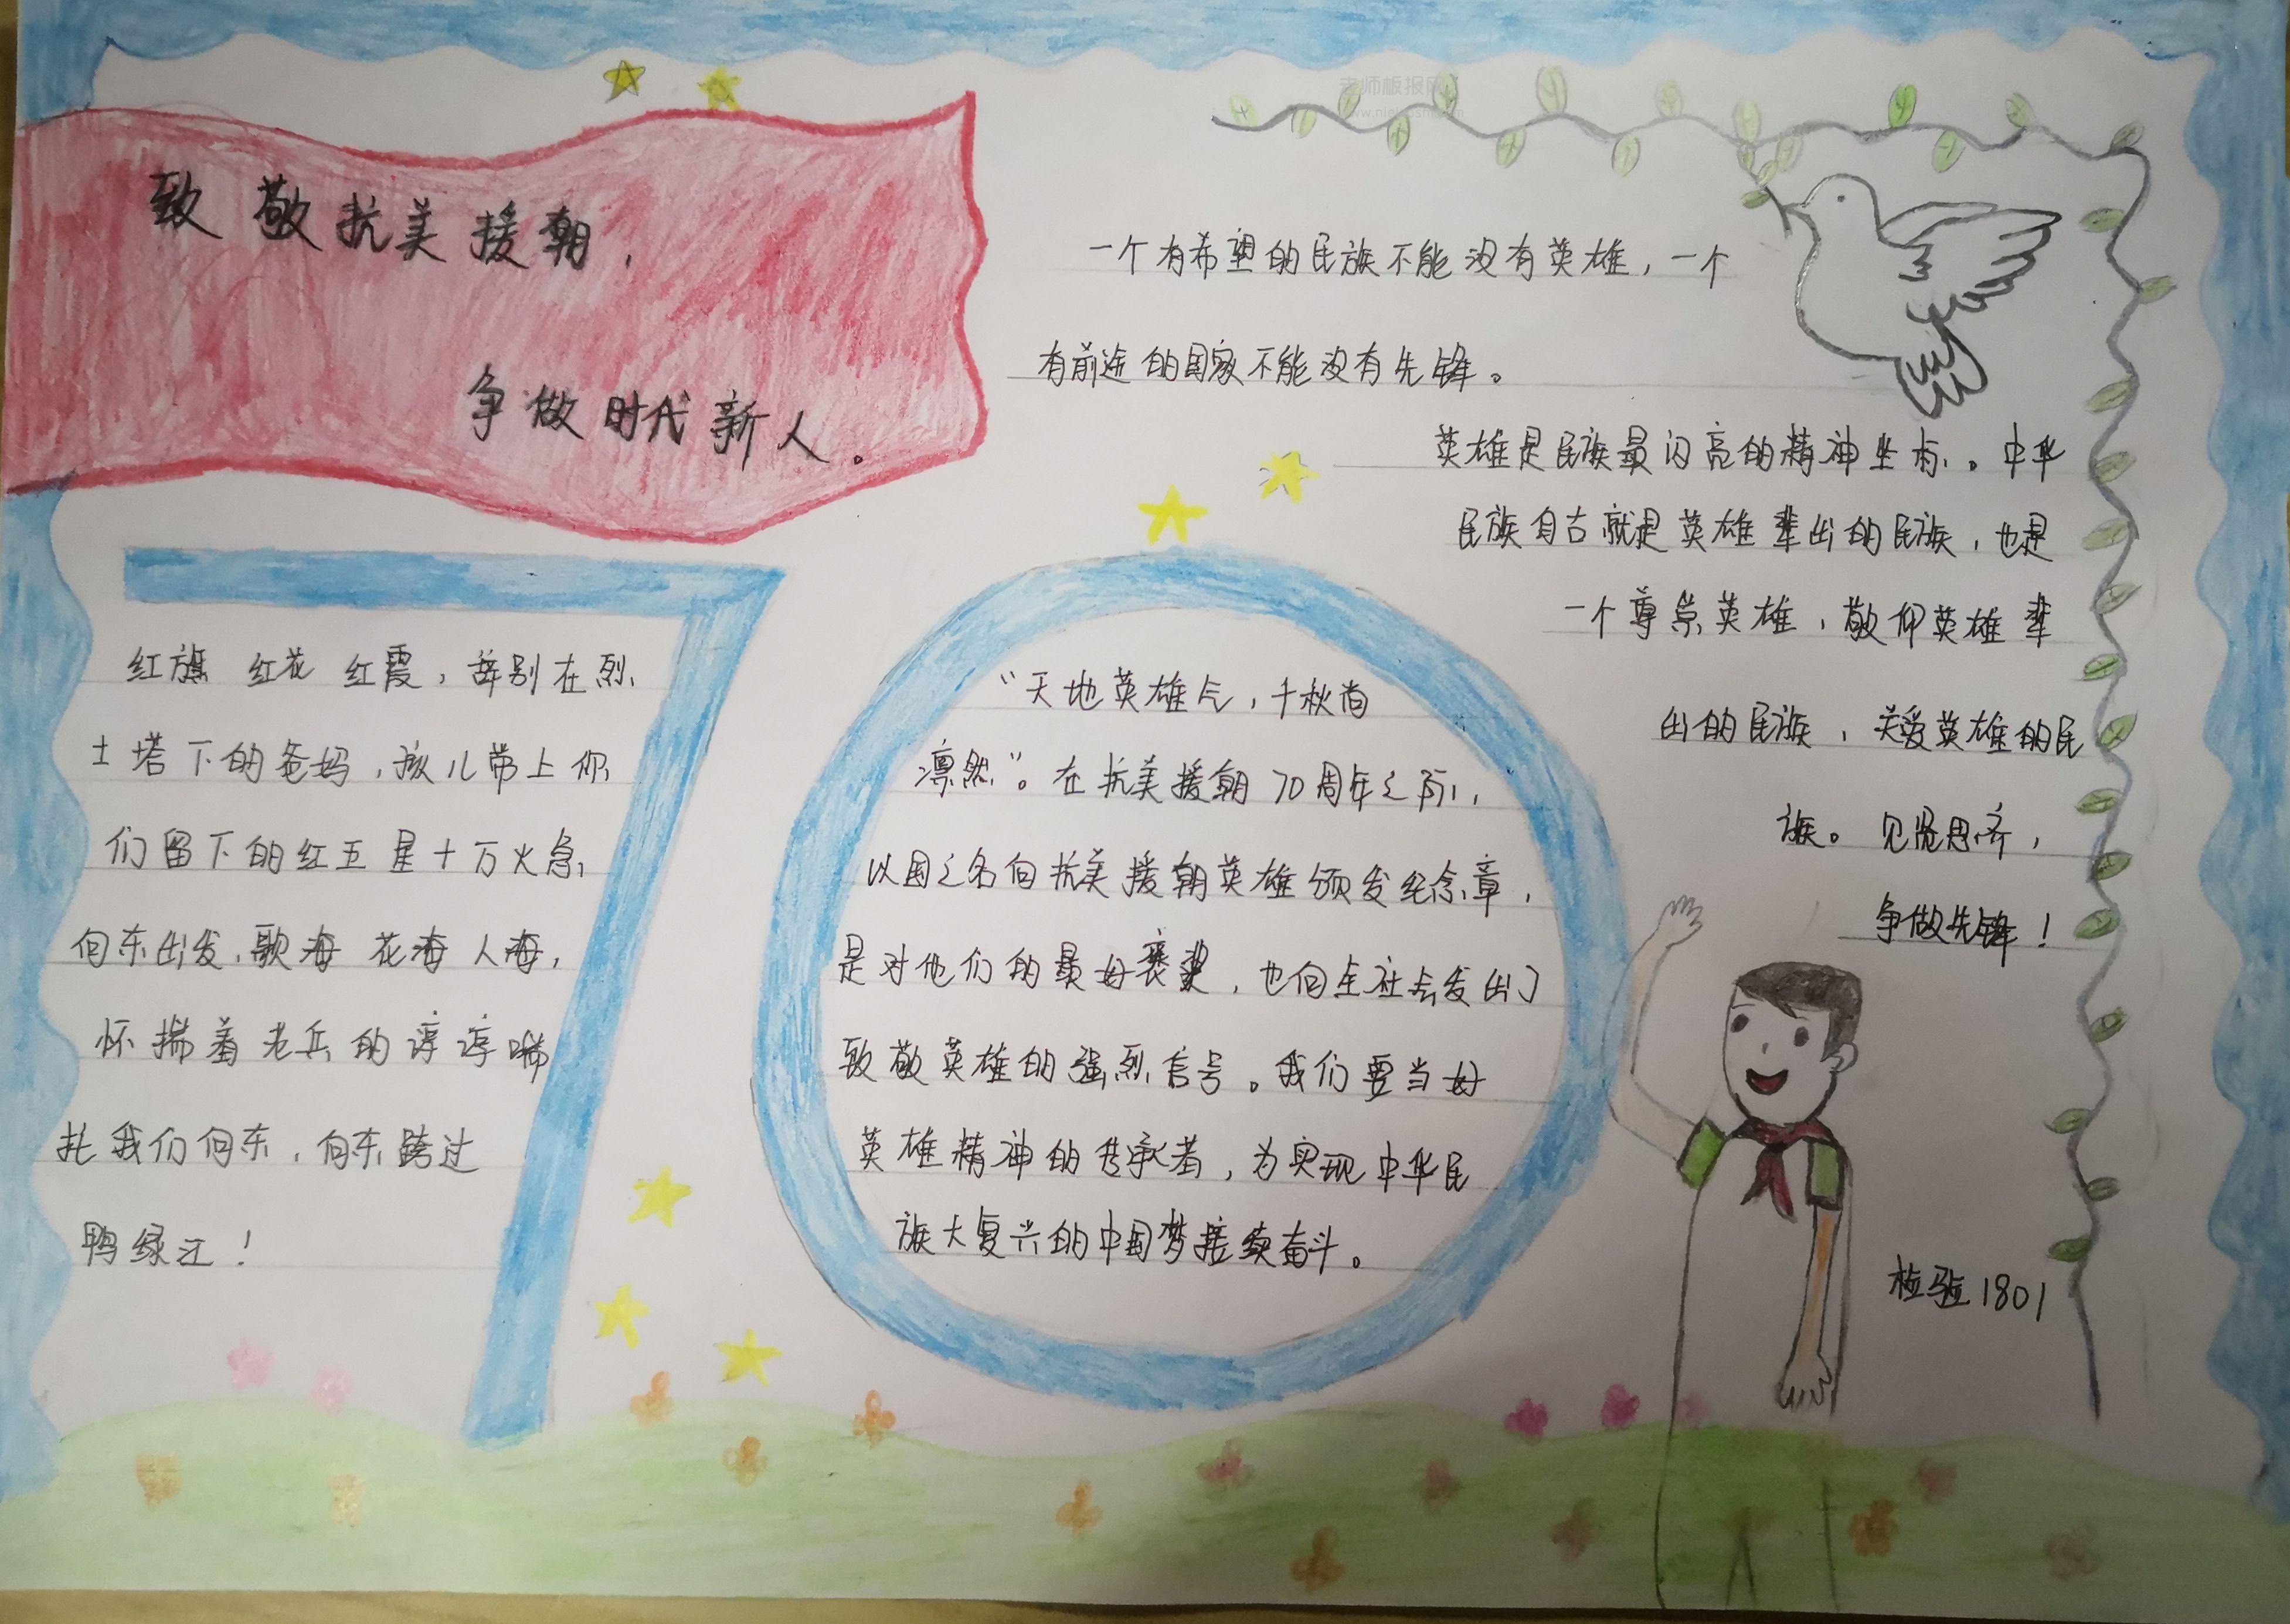 致敬抗美援朝，
争做时代新人。
老师板报网
一个有希望的民族不能没有英雄，一个
有前途的国家不能没有先锋。
英雄是民族最闪亮的精神坐标。中华
民族自古就是英雄辈出的民族，也是
一个尊崇英雄，敬仰英雄辈
出的民族，关爱英雄的民
族。见贤思齐，
争做先锋！
红旗 红花 红霞，辞别在烈
士塔下的爸妈，孩儿带上你
们留下的红五星十万火急
向东出发，歌海 花海 人海，
怀揣着老兵的谆谆嘱
托我们向东，向东跨过
鸭绿江！
70
“天地英雄气，千秋尚
凛然”。在抗美援朝70周年之际，
以国之名向抗美援朝英雄颁发纪念章，
是对他们的最好褒奖，也向全社会发出了
致敬英雄的强烈信号。我们要当好
英雄精神的传承者，为实现中华民
族大复兴的中国梦接续奋斗。
检验1801